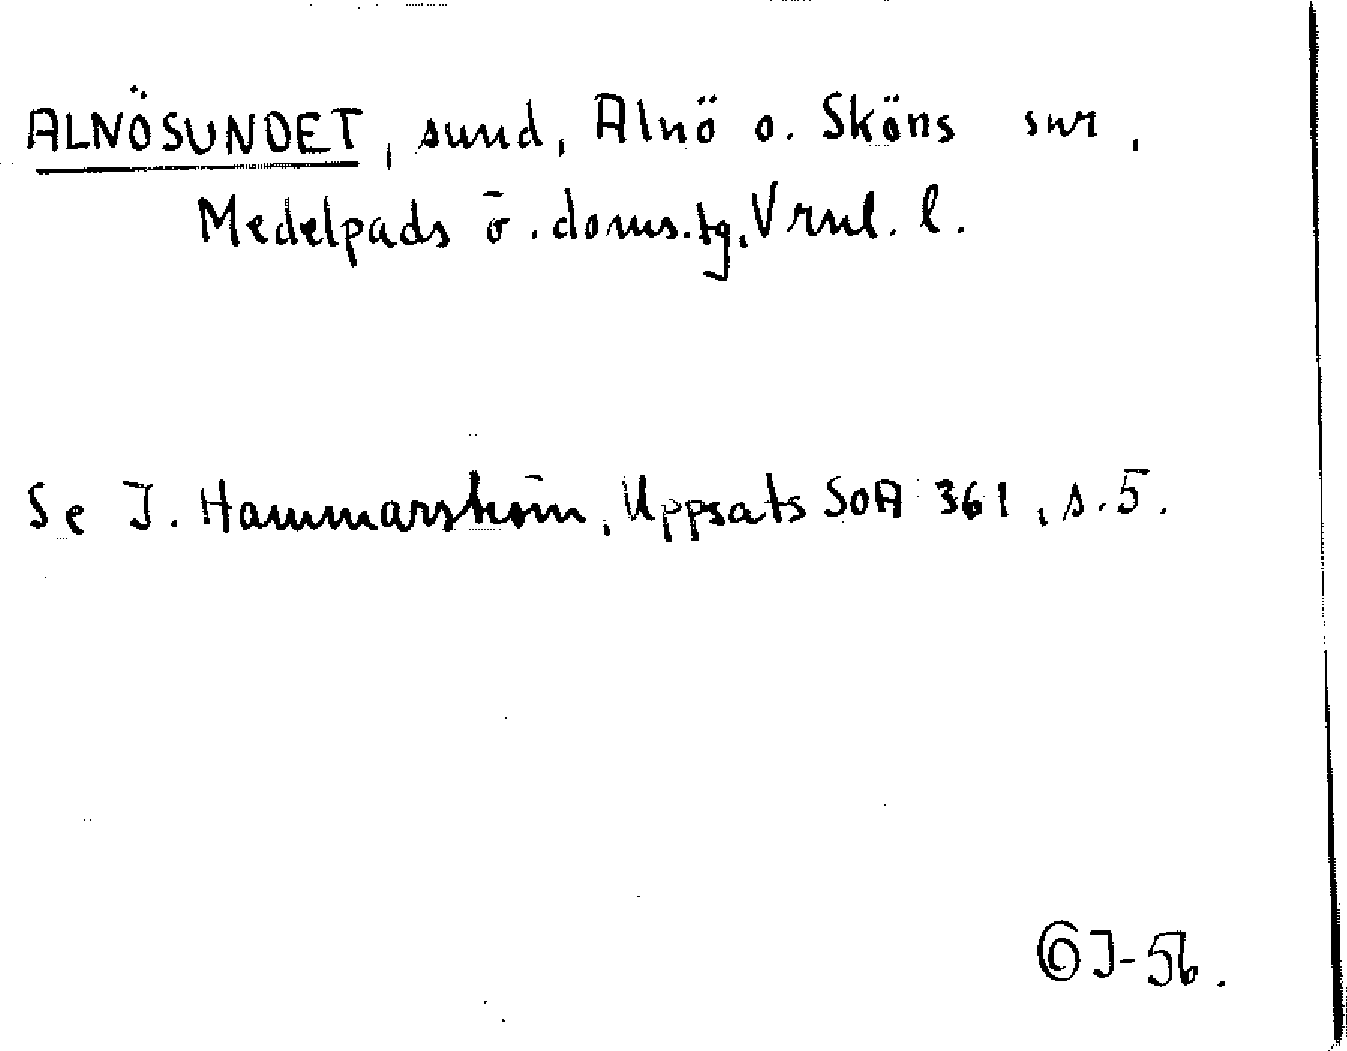 ALNÖSUNDET, sund, Alnö o. Sköns snr,
Medelpads ö. doms.tg. Vrnl. l.
Se I. Hammarström, Uppsats SOA 361, s. 5.
J-56.